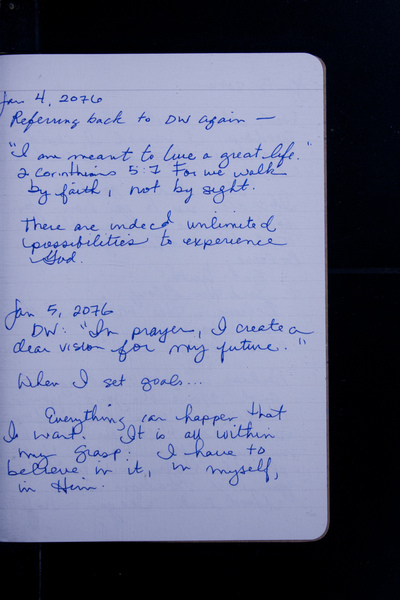 Jan 4, 2076
Referring back to DW again —
"I am meant to live a great life."
2 Corinthians 5:7 For we walk
by faith, not by sight.
There are indeed unlimited
possibilities to experience
God.
Jan 5, 2076
DW: "In prayer, I create a
clear vision for my future."
When I set goals...
Everything can happen that
I want. It is all within
my grasp. I have to
believe in it, in myself,
in Him.